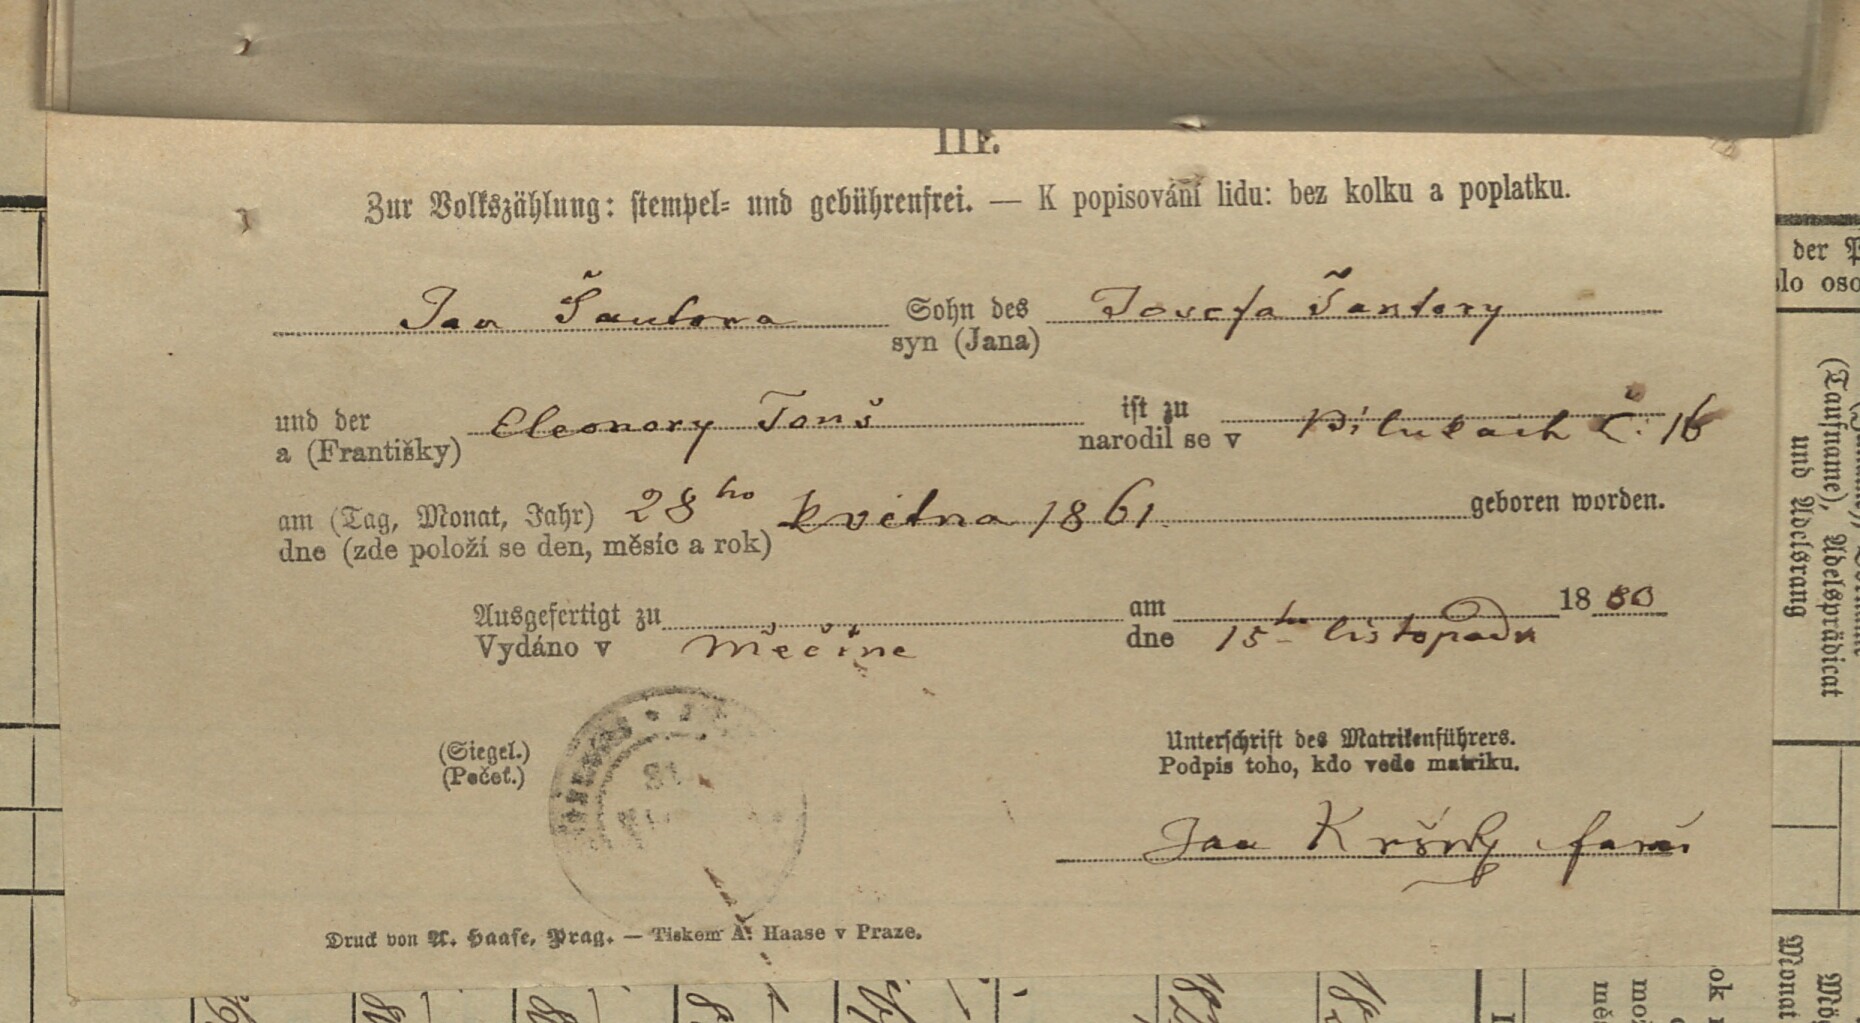 III.
Zur Volkszählung: stempel- und gebührenfrei. — K popisování lidu: bez kolku a poplatku.
Jan Šantora Sohn des Josefa Šantory
syn (Jana)
und der Eleonory Tonš ist zu
a (Františky) narodil se v Bílukách č. 16
am (Tag, Monat, Jahr) 28ho května 1861 geboren worden.
dne (zde položí se den, měsíc a rok)
Ausgefertigt zu am 1880
Vydáno v Měčíně dne 15ho listopadu
(Siegel.) Unterschrift des Matrikenführers.
(Pečeť.) Podpis toho, kdo vede matriku.
Jan farář
Druck von A. Haase, Prag. — Tiskem A. Haase v Praze.
der
slo oso
(Taufname), Adelsprädicat
und Adelsrang
Monat